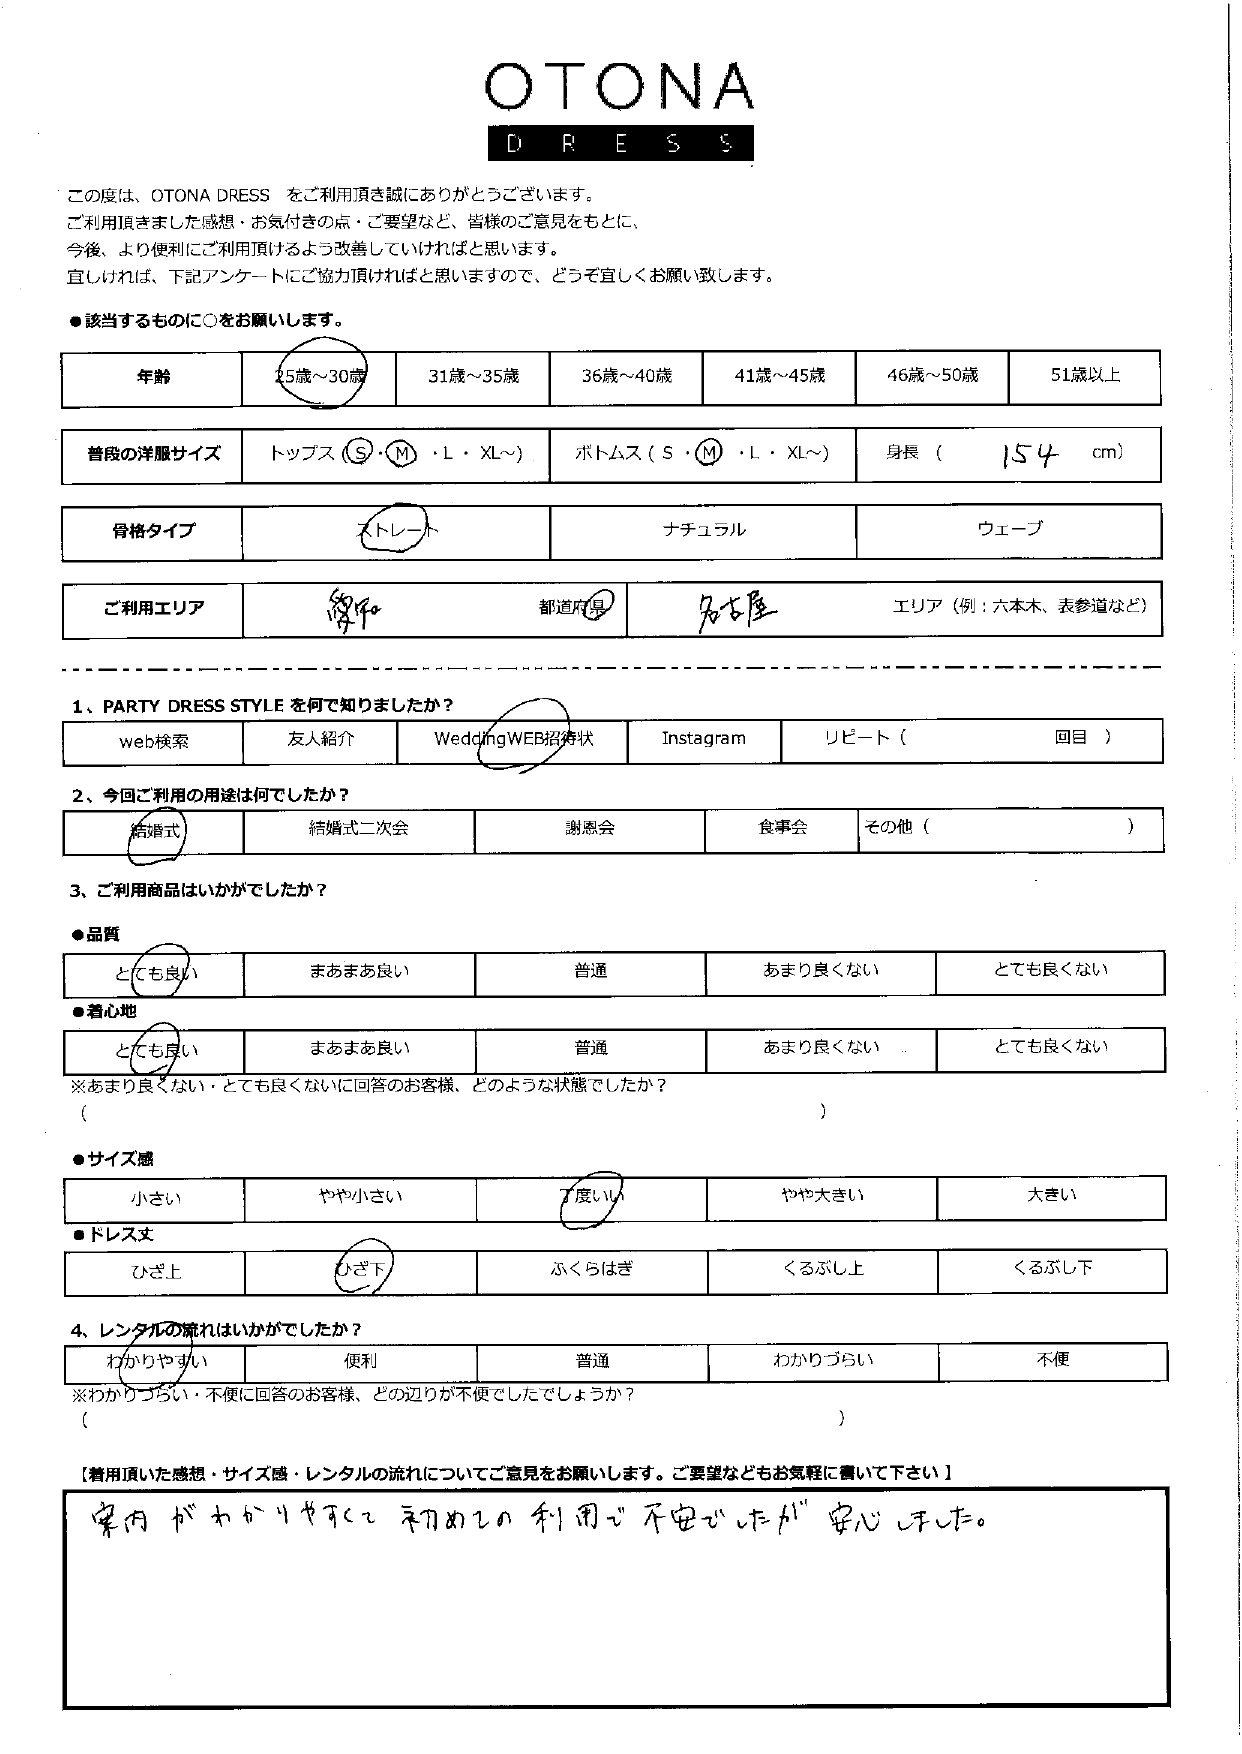 OTONA
DRESS
この度は、OTONA DRESS をご利用頂き誠にありがとうございます。
ご利用頂きました感想・お気付きの点・ご要望など、皆様のご意見をもとに、
今後、より便利にご利用頂けるよう改善していければと思います。
宜しければ、下記アンケートにご協力頂ければと思いますので、どうぞ宜しくお願い致します。
●該当するものに○をお願いします。
年齢 25歳～30歳 31歳～35歳 36歳～40歳 41歳～45歳 46歳～50歳 51歳以上
普段の洋服サイズ トップス (S・M ・L・ XL～) ボトムス ( S ・M ・L・ XL～) 身長 ( 154 cm)
骨格タイプ ストレート ナチュラル ウェーブ
ご利用エリア 愛知 都道府県 名古屋 エリア（例：六本木、表参道など）
1、PARTY DRESS STYLE を何で知りましたか？
web検索 友人紹介 WeddingWEB招待状 Instagram リピート（ 回目 ）
2、今回ご利用の用途は何でしたか？
結婚式 結婚式二次会 謝恩会 食事会 その他（ ）
3、ご利用商品はいかがでしたか？
●品質
とても良い まあまあ良い 普通 あまり良くない とても良くない
●着心地
とても良い まあまあ良い 普通 あまり良くない とても良くない
※あまり良くない・とても良くないに回答のお客様、どのような状態でしたか？
（ ）
●サイズ感
小さい やや小さい 丁度いい やや大きい 大きい
●ドレス丈
ひざ上 ひざ下 ふくらはぎ くるぶし上 くるぶし下
4、レンタルの流れはいかがでしたか？
わかりやすい 便利 普通 わかりづらい 不便
※わかりづらい・不便に回答のお客様、どの辺りが不便でしたでしょうか？
（ ）
【着用頂いた感想・サイズ感・レンタルの流れについてご意見をお願いします。ご要望などもお気軽に書いて下さい】
案内がわかりやすくて初めての利用で不安でしたが安心しました。